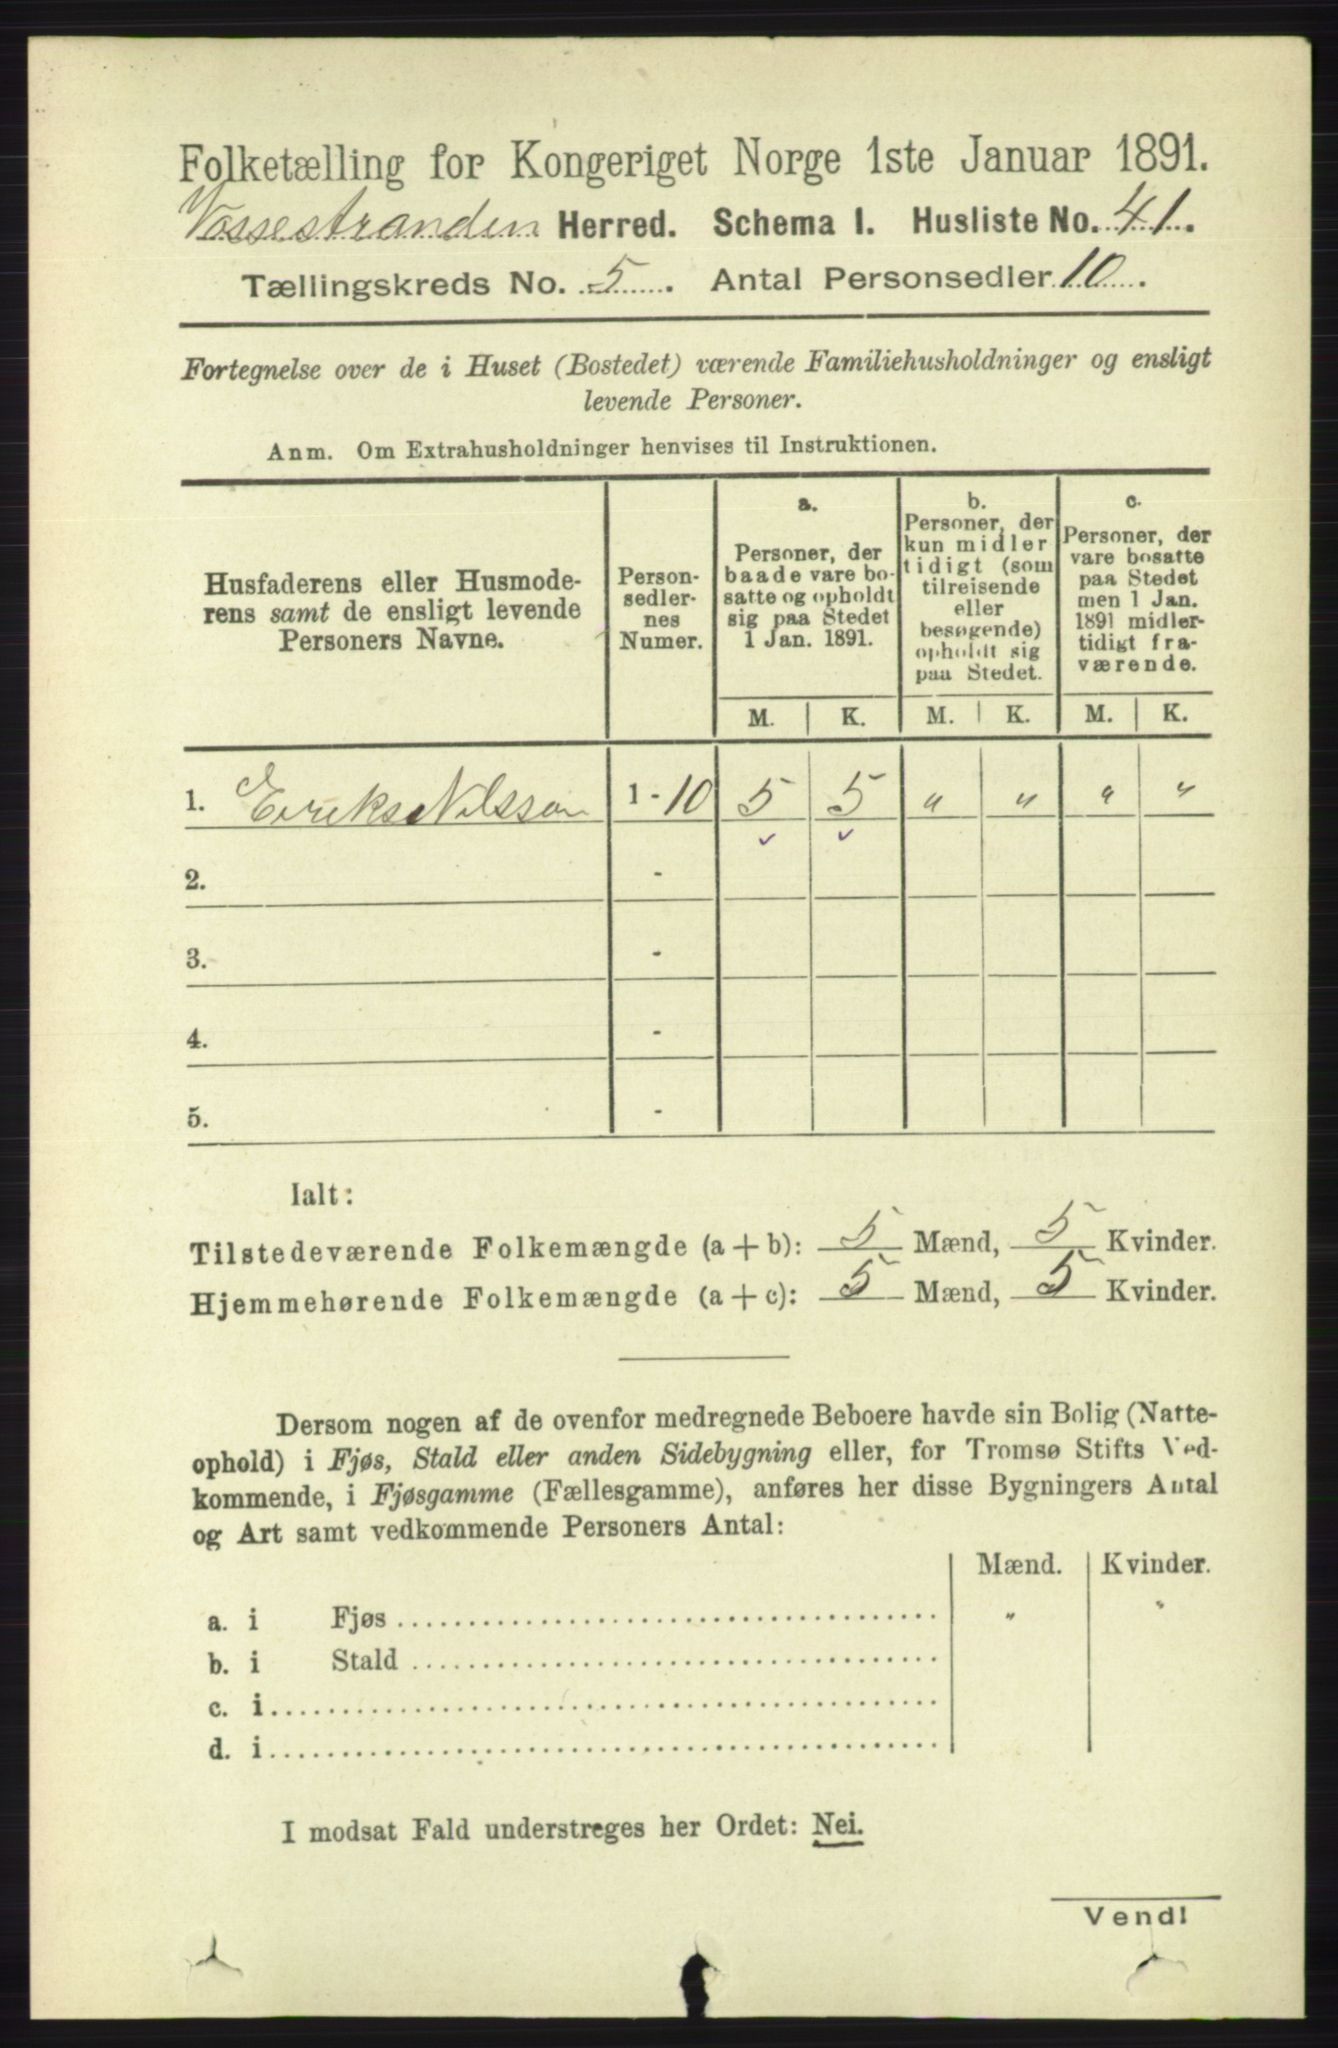 Folketælling for Kongeriget Norge 1ste Januar 1891.
Vossestranden Herred. Schema I. Husliste No. 41.
Tællingskreds No. 5. Antal Personsedler 10.
Fortegnelse over de i Huset (Bostedet) værende Familiehusholdninger og ensligt
levende Personer.
Anm. Om Extrahusholdninger henvises til Instruktionen.
Husfaderens eller Husmode-
rens samt de ensligt levende
Personers Navne.
Person-
sedler-
nes
Numer.
a.
Personer, der
baade vare bo-
satte og opholdt
sig paa Stedet
1 Jan. 1891.
b.
Personer, der
kun midler
tidigt (som
tilreisende
eller
besøgende)
opholdt sig
paa Stedet.
c.
Personer, der
vare bosatte
paa Stedet
men 1 Jan.
1891 midler-
tidigt fra-
værende.
M. K. M. K. M. K.
1. Eirik Nilsson 1 - 10 5 5 " " " "
2. -
3. -
4. -
5. -
Ialt:
Tilstedeværende Folkemængde (a + b): 5 Mænd, 5 Kvinder.
Hjemmehørende Folkemængde (a + c): 5 Mænd, 5 Kvinder.
Dersom nogen af de ovenfor medregnede Beboere havde sin Bolig (Natte-
ophold) i Fjøs, Stald eller anden Sidebygning eller, for Tromsø Stifts Ved-
kommende, i Fjøsgamme (Fællesgamme), anføres her disse Bygningers Antal
og Art samt vedkommende Personers Antal:
Mænd. Kvinder.
a. i Fjøs " "
b. i Stald
c. i
d. i
I modsat Fald understreges her Ordet: Nei.
Vend!